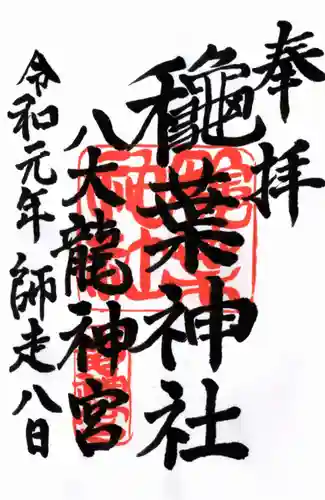 奉拝
龝葉神社
八大龍神宮
令和元年 師走八日